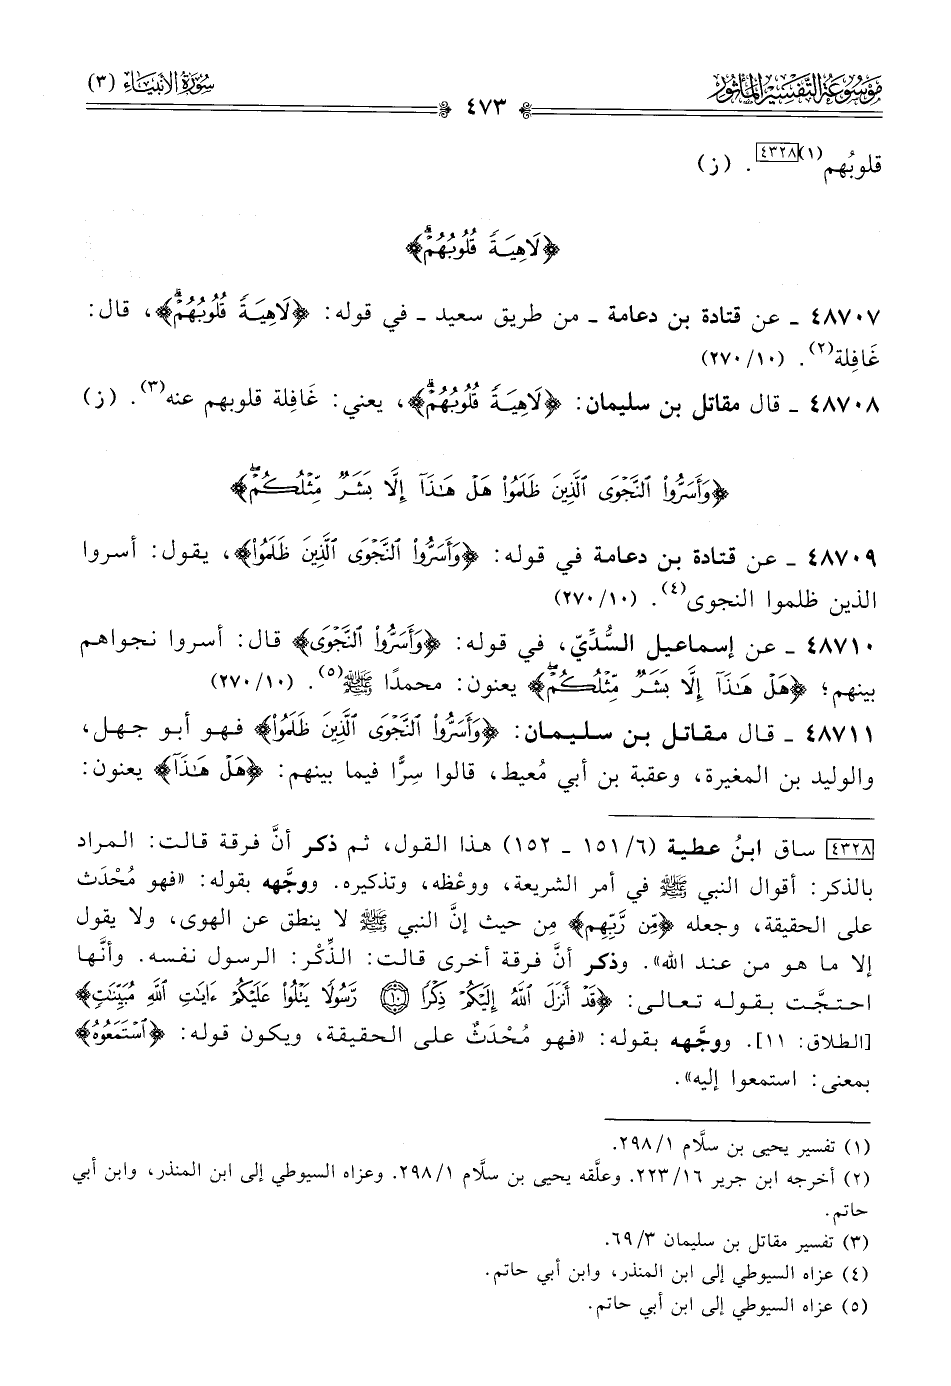 مَوْسُوعَةُ التَّفْسِيْرِ المَأْثُورِ
٤٧٣
سُورَةُ الأَنْبِيَاء (٣)
قلوبُهم(١)[٤٣٢٨]. (ز)
﴿لَاهِيَةً قُلُوبُهُمْۗ﴾
٤٨٧٠٧ ـ عن قتادة بن دعامة ـ من طريق سعيد ـ في قوله: ﴿لَاهِيَةً قُلُوبُهُمْۗ﴾، قال:
غَافِلة(٢). (١٠/ ٢٧٠)
٤٨٧٠٨ ـ قال مقاتل بن سليمان: ﴿لَاهِيَةً قُلُوبُهُمْۗ﴾، يعني: غَافِلة قلوبهم عنه(٣). (ز)
﴿وَأَسَرُّواْ ٱلنَّجْوَى ٱلَّذِينَ ظَلَمُواْ هَلْ هَٰذَآ إِلَّا بَشَرٌ مِّثْلُكُمْۖ﴾
٤٨٧٠٩ ـ عن قتادة بن دعامة في قوله: ﴿وَأَسَرُّواْ ٱلنَّجْوَى ٱلَّذِينَ ظَلَمُواْ﴾، يقول: أسروا
الذين ظلموا النجوى(٤). (١٠/ ٢٧٠)
٤٨٧١٠ ـ عن إسماعيل السُّدِّيّ، في قوله: ﴿وَأَسَرُّواْ ٱلنَّجْوَى﴾ قال: أسروا نجواهم
بينهم؛ ﴿هَلْ هَٰذَآ إِلَّا بَشَرٌ مِّثْلُكُمْۖ﴾ يعنون: محمدًا ﷺ(٥). (١٠/ ٢٧٠)
٤٨٧١١ ـ قال مقاتل بن سليمان: ﴿وَأَسَرُّواْ ٱلنَّجْوَى ٱلَّذِينَ ظَلَمُواْ﴾ فهو أبو جهل،
والوليد بن المغيرة، وعقبة بن أبي مُعيط، قالوا سِرًّا فيما بينهم: ﴿هَلْ هَٰذَآ﴾ يعنون:
[٤٣٢٨] ساق ابنُ عطية (٦/ ١٥١ ـ ١٥٢) هذا القول، ثم ذكر أنَّ فرقة قالت: المراد
بالذكر: أقوال النبي ﷺ في أمر الشريعة، ووعْظه، وتذكيره. ووجَّهه بقوله: «فهو مُحْدَث
على الحقيقة، وجعله ﴿مِّن رَّبِّهِم﴾ مِن حيث إنَّ النبي ﷺ لا ينطق عن الهوى، ولا يقول
إلا ما هو من عند الله». وذكر أنَّ فرقة أخرى قالت: الذِّكْر: الرسول نفسه. وأنَّها
احتجَّت بقوله تعالى: ﴿قَدْ أَنزَلَ ٱللَّهُ إِلَيْكُمْ ذِكْرًا ۝١٠ رَّسُولًا يَتْلُواْ عَلَيْكُمْ ءَايَٰتِ ٱللَّهِ مُبَيِّنَٰتٍ﴾
[الطلاق: ١١]. ووجَّهه بقوله: «فهو مُحْدَثٌ على الحقيقة، ويكون قوله: ﴿ٱسْتَمَعُوهُ﴾
بمعنى: استمعوا إليه».
(١) تفسير يحيى بن سلَّام ١/ ٢٩٨.
(٢) أخرجه ابن جرير ١٦/ ٢٢٣. وعلَّقه يحيى بن سلَّام ١/ ٢٩٨. وعزاه السيوطي إلى ابن المنذر، وابن أبي
حاتم.
(٣) تفسير مقاتل بن سليمان ٣/ ٦٩.
(٤) عزاه السيوطي إلى ابن المنذر، وابن أبي حاتم.
(٥) عزاه السيوطي إلى ابن أبي حاتم.